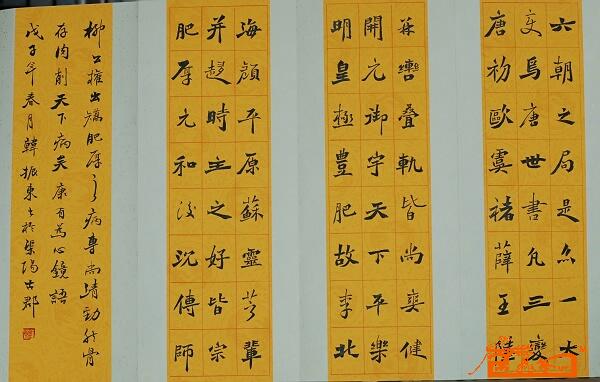 六朝之局是亦一大
变焉唐世書凡三變
唐初歐虞褚薛王陸
並轡疊軌皆尚爽健
開元御宇天下平樂
明皇極豐肥故李北
海顏平原蘇靈芝輩
并趨時主之好皆宗
肥厚元和後沈傳師
柳公權出矯肥厚之病專尚清勁然骨
存肉削天下病矣康有為心鏡語
戊子年春月韓振東書於陽古郡